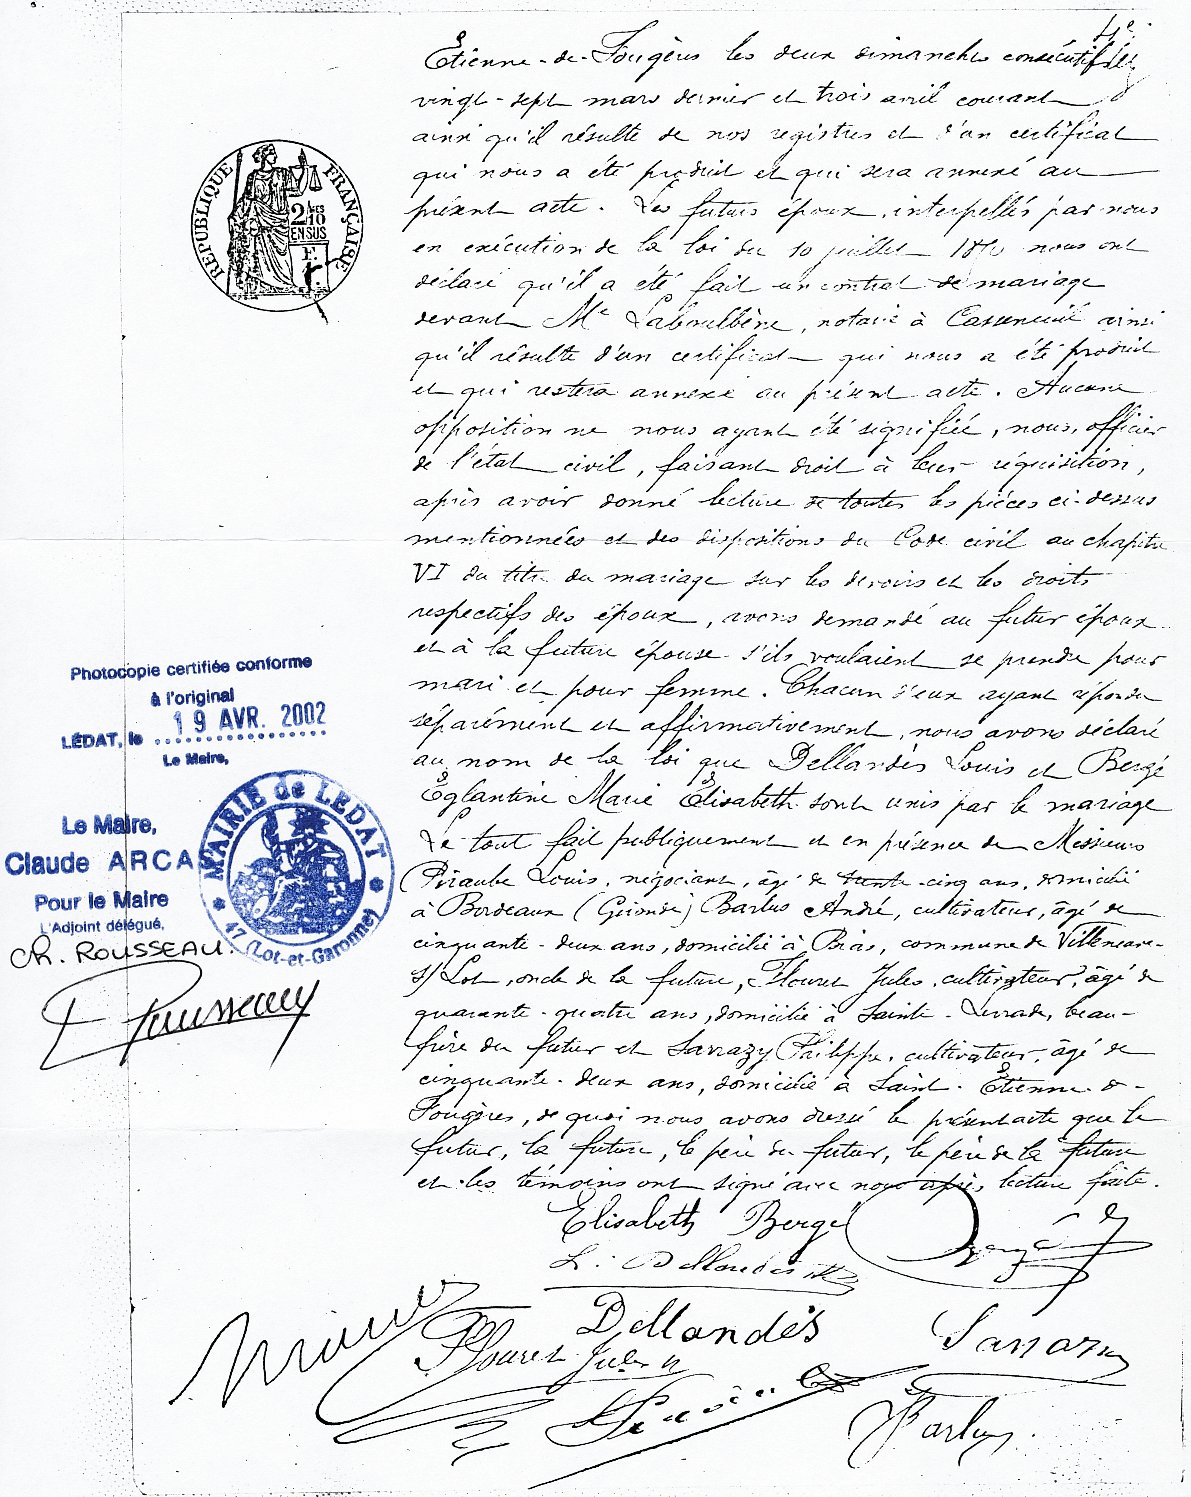 4e
Étienne-de-Fougères les deux dimanches consécutifs des
vingt-sept mars dernier et trois avril courant
ainsi qu'il résulte de nos registres et d'un certificat
qui nous a été produit et qui sera annexé au
présent acte. Les futurs époux, interpellés par nous
en exécution de la loi du 10 juillet 1850 nous ont
déclaré qu'il a été fait un contrat de mariage
devant Me Laboulbène, notaire à Casseneuil ainsi
qu'il résulte d'un certificat qui nous a été produit
et qui restera annexé au présent acte. Aucune
opposition ne nous ayant été signifiée, nous, officier
de l'état civil, faisant droit à leur réquisition,
après avoir donné lecture de toutes les pièces ci-dessus
mentionnées et des dispositions du Code civil au chapitre
VI du titre du mariage sur les devoirs et les droits
respectifs des époux, avons demandé au futur époux
et à la future épouse s'ils voulaient se prendre pour
mari et pour femme. Chacun d'eux ayant répondu
séparément et affirmativement, nous avons déclaré
au nom de la loi que Dellandès Louis et Bergé
Églantine Marie Élisabeth sont unis par le mariage
Le tout fait publiquement et en présence de Messieurs
Louis, négociant, âgé de trente-cinq ans, domicilié
à Bordeaux (Gironde) Barlus André, cultivateur, âgé de
cinquante-deux ans, domicilié à Bias, commune de Villeneuve-
s/Lot, oncle de la future, Flouret Jules, cultivateur, âgé de
quarante-quatre ans, domicilié à Sainte-Livrade, beau-
frère du futur et Sarrazy Philippe, cultivateur, âgé de
cinquante-deux ans, domicilié à Saint-Étienne-de-
Fougères, de quoi nous avons dressé le présent acte que le
futur, la future, le père du futur, le père de la future
et les témoins ont signé avec nous après lecture faite.
Elisabeth Bergé
Bergé
L. Dellandès
Dellandès
Flouret Jules
Sarrazy
Barlus
RÉPUBLIQUE FRANÇAISE
2/10
EN SUS
Photocopie certifiée conforme
à l'original
LÉDAT, le 19 AVR. 2002
Le Maire,
MAIRIE de LEDAT
47 (Lot-et-Garonne)
Le Maire,
Claude ARCA
Pour le Maire
L'Adjoint délégué,
Ch. ROUSSEAU.
Rousseau